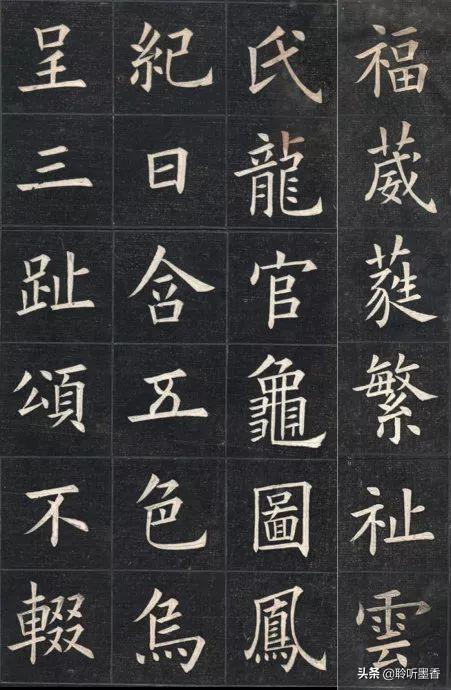 福葳蕤繁祉雲
氏龍官龜圖鳳
紀日含五色烏
呈三趾頌不輟
头条 @聆听墨香